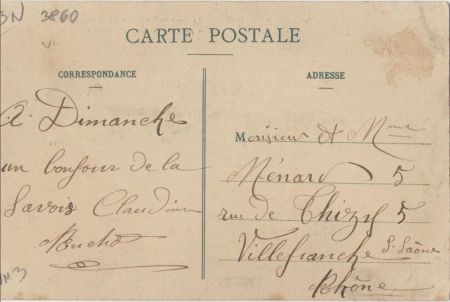 BN 3860
CARTE POSTALE
CORRESPONDANCE
A Dimanche
un bonjour de la
Savoie Claudine
ADRESSE
Monsieur et Mme
Ménard 5
rue de Thizy 5
Villefranche S. Saône
Rhône